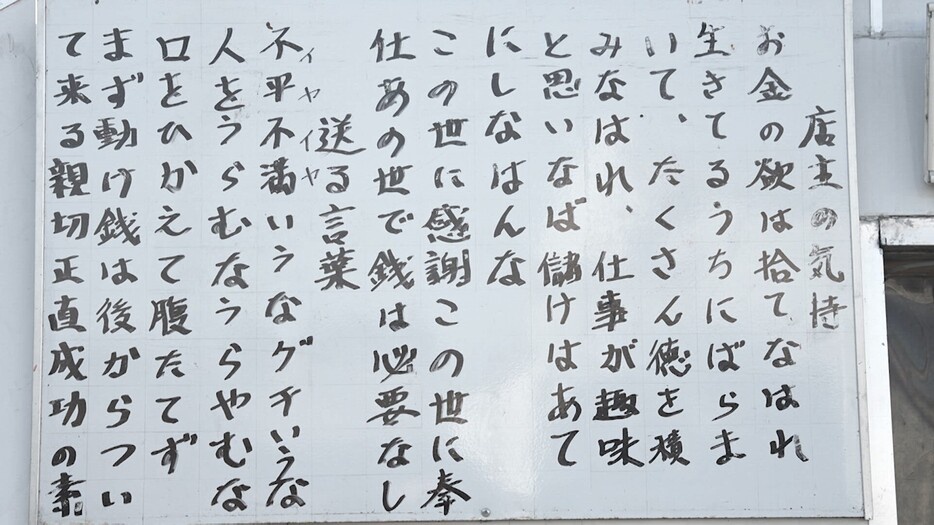 店主の気持
お金の欲は拾てなはれ
生きてるうちにばらま
いて、たくさん徳を積
みなはれ、仕事が趣味
と思いなば儲けはあて
にしなはんな
この世に感謝この世に奉
仕あの世で銭は必要なし
送る言葉
イヤイヤ
不平不満いうなグチいうな
人をうらむなうらやむな
口をひかえて腹たてず
まず動け銭は後からつい
て来る親切正直成功の素